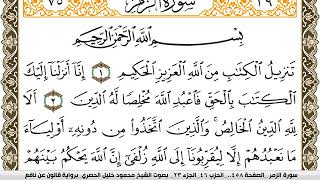 ٧٥ سُورَةُ الزُّمَرِ ٣٩
بِسْمِ اللَّهِ الرَّحْمَٰنِ الرَّحِيمِ
تَنزِيلُ الْكِتَٰبِ مِنَ اللَّهِ الْعَزِيزِ الْحَكِيمِ ١ إِنَّا أَنزَلْنَا إِلَيْكَ
الْكِتَٰبَ بِالْحَقِّ فَاعْبُدِ اللَّهَ مُخْلِصًا لَّهُ الدِّينَ ٢ أَلَا
لِلَّهِ الدِّينُ الْخَالِصُ وَالَّذِينَ اتَّخَذُوا مِن دُونِهِ أَوْلِيَاءَ
مَا نَعْبُدُهُمْ إِلَّا لِيُقَرِّبُونَا إِلَى اللَّهِ زُلْفَىٰ إِنَّ اللَّهَ يَحْكُمُ بَيْنَهُمْ
سورة الزمر الصفحة ٤٥٨ .. الحزب ٤٦ الجزء ٢٣ بصوت الشيخ محمود خليل الحصري برواية قالون عن نافع